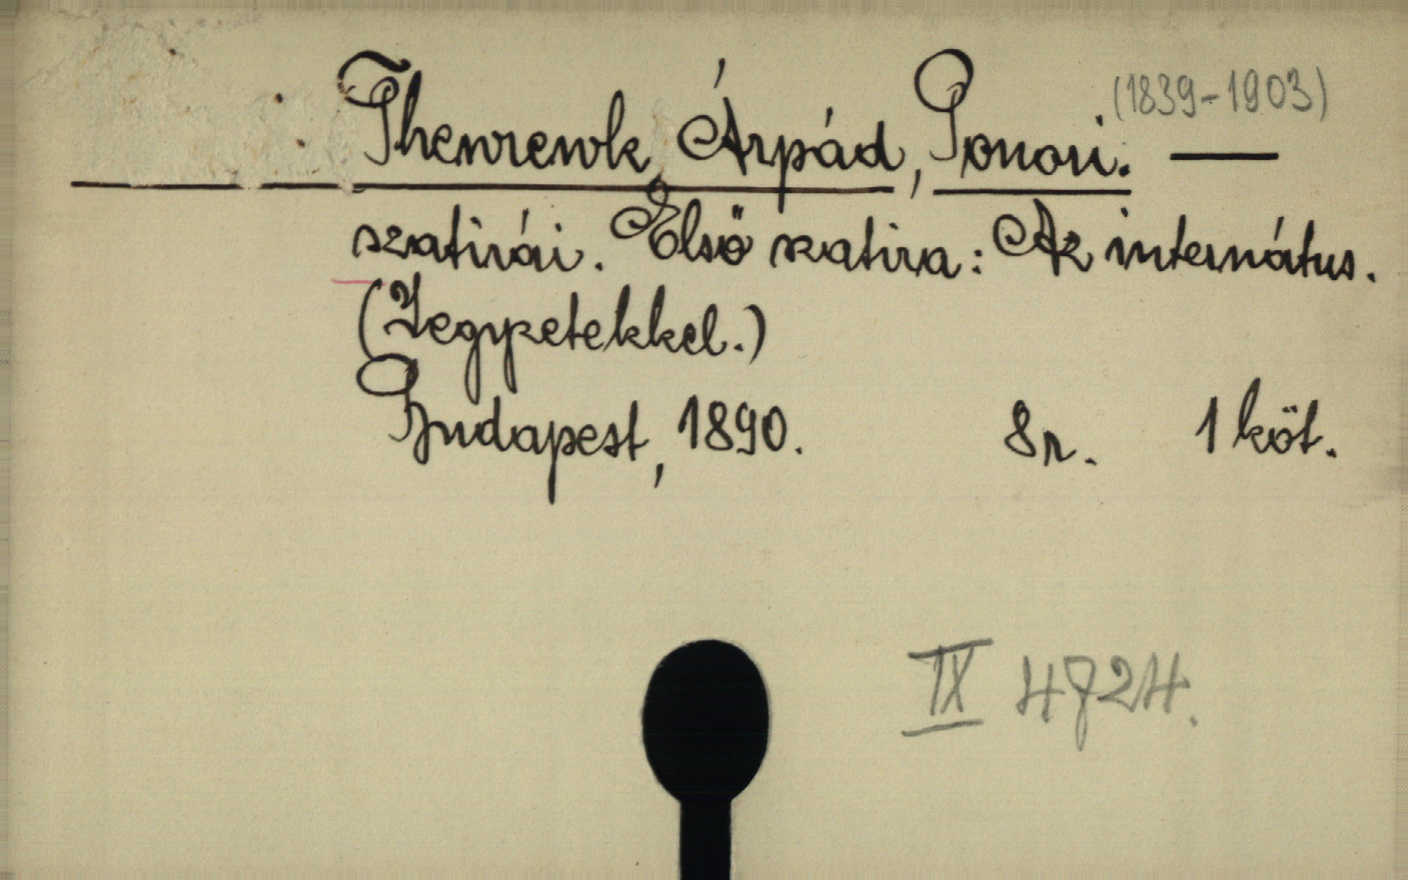 Thewrewk Árpád, Ponori. (1839-1903) —
szatirái. Első szatira: Az internátus.
(Jegyzetekkel.)
Budapest, 1890. 8r. 1 köt.
IX 4724.